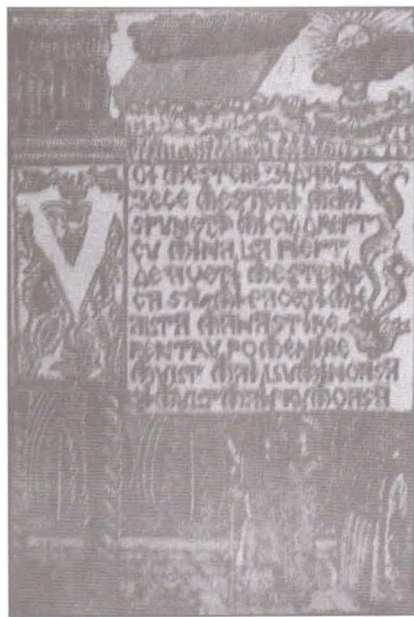 VOI MESTERI ZIDARI
ZECE MESTERI MARI
SPUNETI MI CU DREPT
CU MINA LA PIEPT
DE AVETI MESTERIE
CA SA MI FACETI MIE
ALTA MANASTIRE
PENTRU POMENIRE
MULT MAI LUMINOASA
SI MULT MAI FRUMOASA